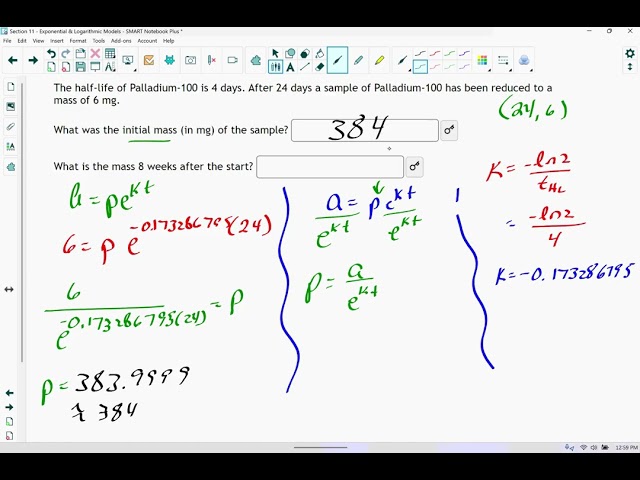 Section 11 - Exponential & Logarithmic Models - SMART Notebook Plus *
File Edit View Insert Format Tools Add-ons Help
The half-life of Palladium-100 is 4 days. After 24 days a sample of Palladium-100 has been reduced to a
mass of 6 mg.
(24, 6)
What was the initial mass (in mg) of the sample? 384
What is the mass 8 weeks after the start?
a = pe^{kt}
6 = p e^{-0.173286795(24)}
\frac{6}{e^{-0.173286795(24)}} = p
p = 383.9999
≈ 384
\frac{a}{e^{kt}} = \frac{p e^{kt}}{e^{kt}}
p = \frac{a}{e^{kt}}
K = \frac{-ln2}{t_{HL}}
= \frac{-ln2}{4}
K = -0.173286795
12:59 PM